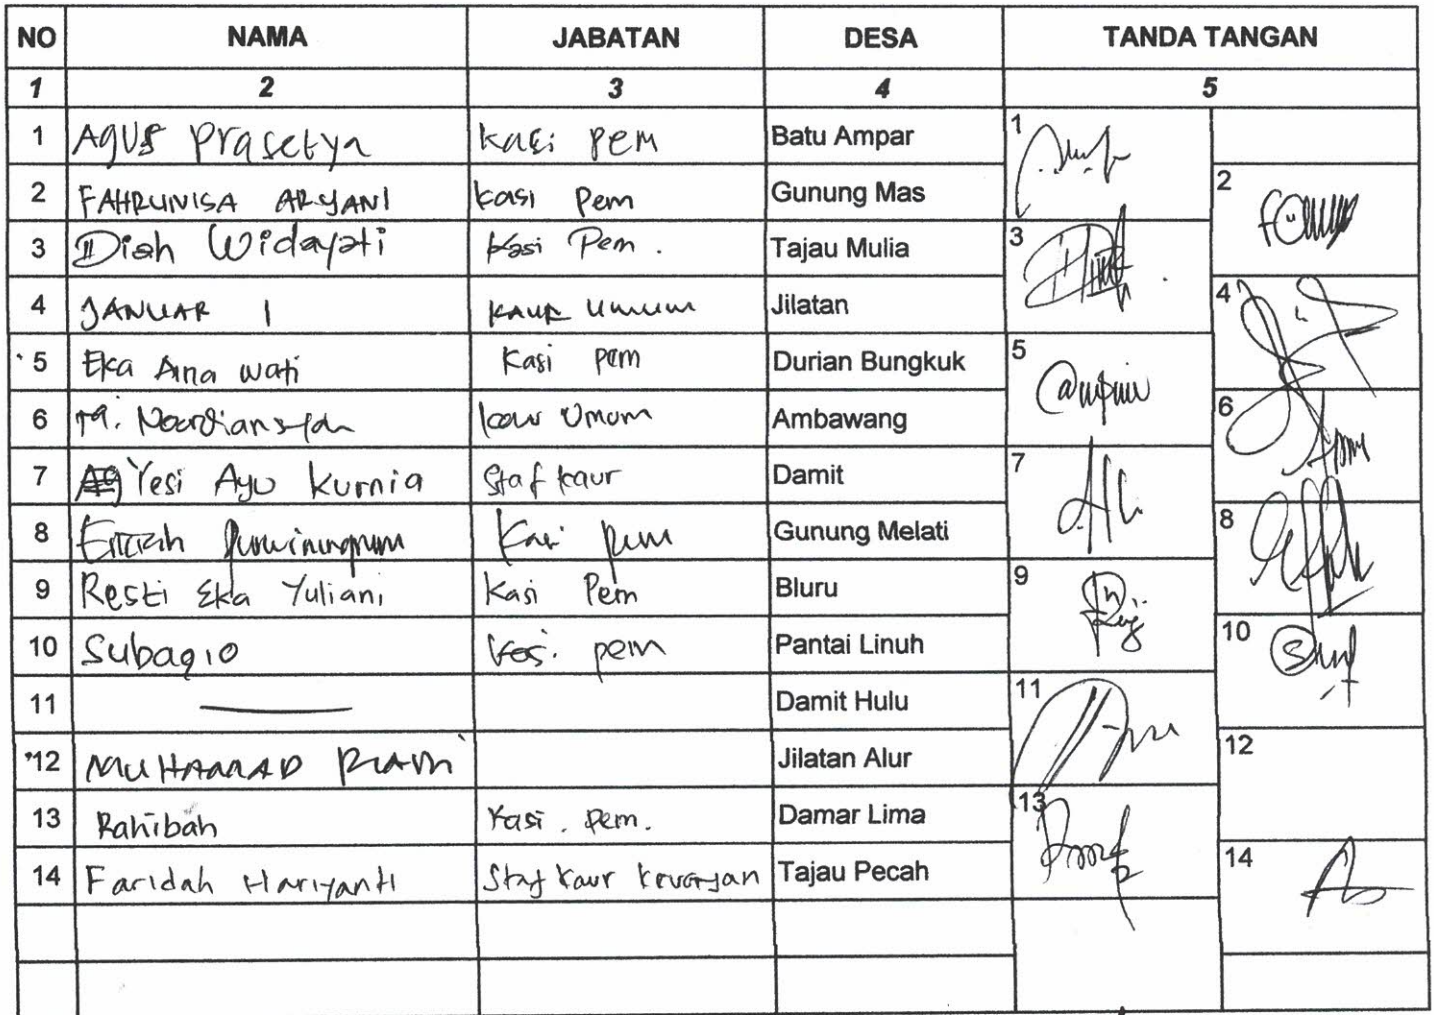 NO NAMA JABATAN DESA TANDA TANGAN
1 2 3 4 5
1 Agus Prasetya kasi pem Batu Ampar 1
2 FAHRUNISA ARYANI kasi Pem Gunung Mas 2
3 Diah Widayati Kasi Pem. Tajau Mulia 3
4 JANUAR I KAUR Umum Jilatan 4
5 Eka Aina wati Kasi pem Durian Bungkuk 5
6 Noordiansyah kaur Umum Ambawang 6
7 Yesi Ayu Kurnia Staf kaur Damit 7
8 Kasi pem Gunung Melati 8
9 Resti Eka Yuliani Kasi Pem Bluru 9
10 Subagio Kasi. pem Pantai Linuh 10
11 Damit Hulu 11
12 MUHAMMAD Jilatan Alur 12
13 Rahibah Kasi. Pem. Damar Lima 13
14 Faridah Hariyanti Staf Kaur Keuangan Tajau Pecah 14